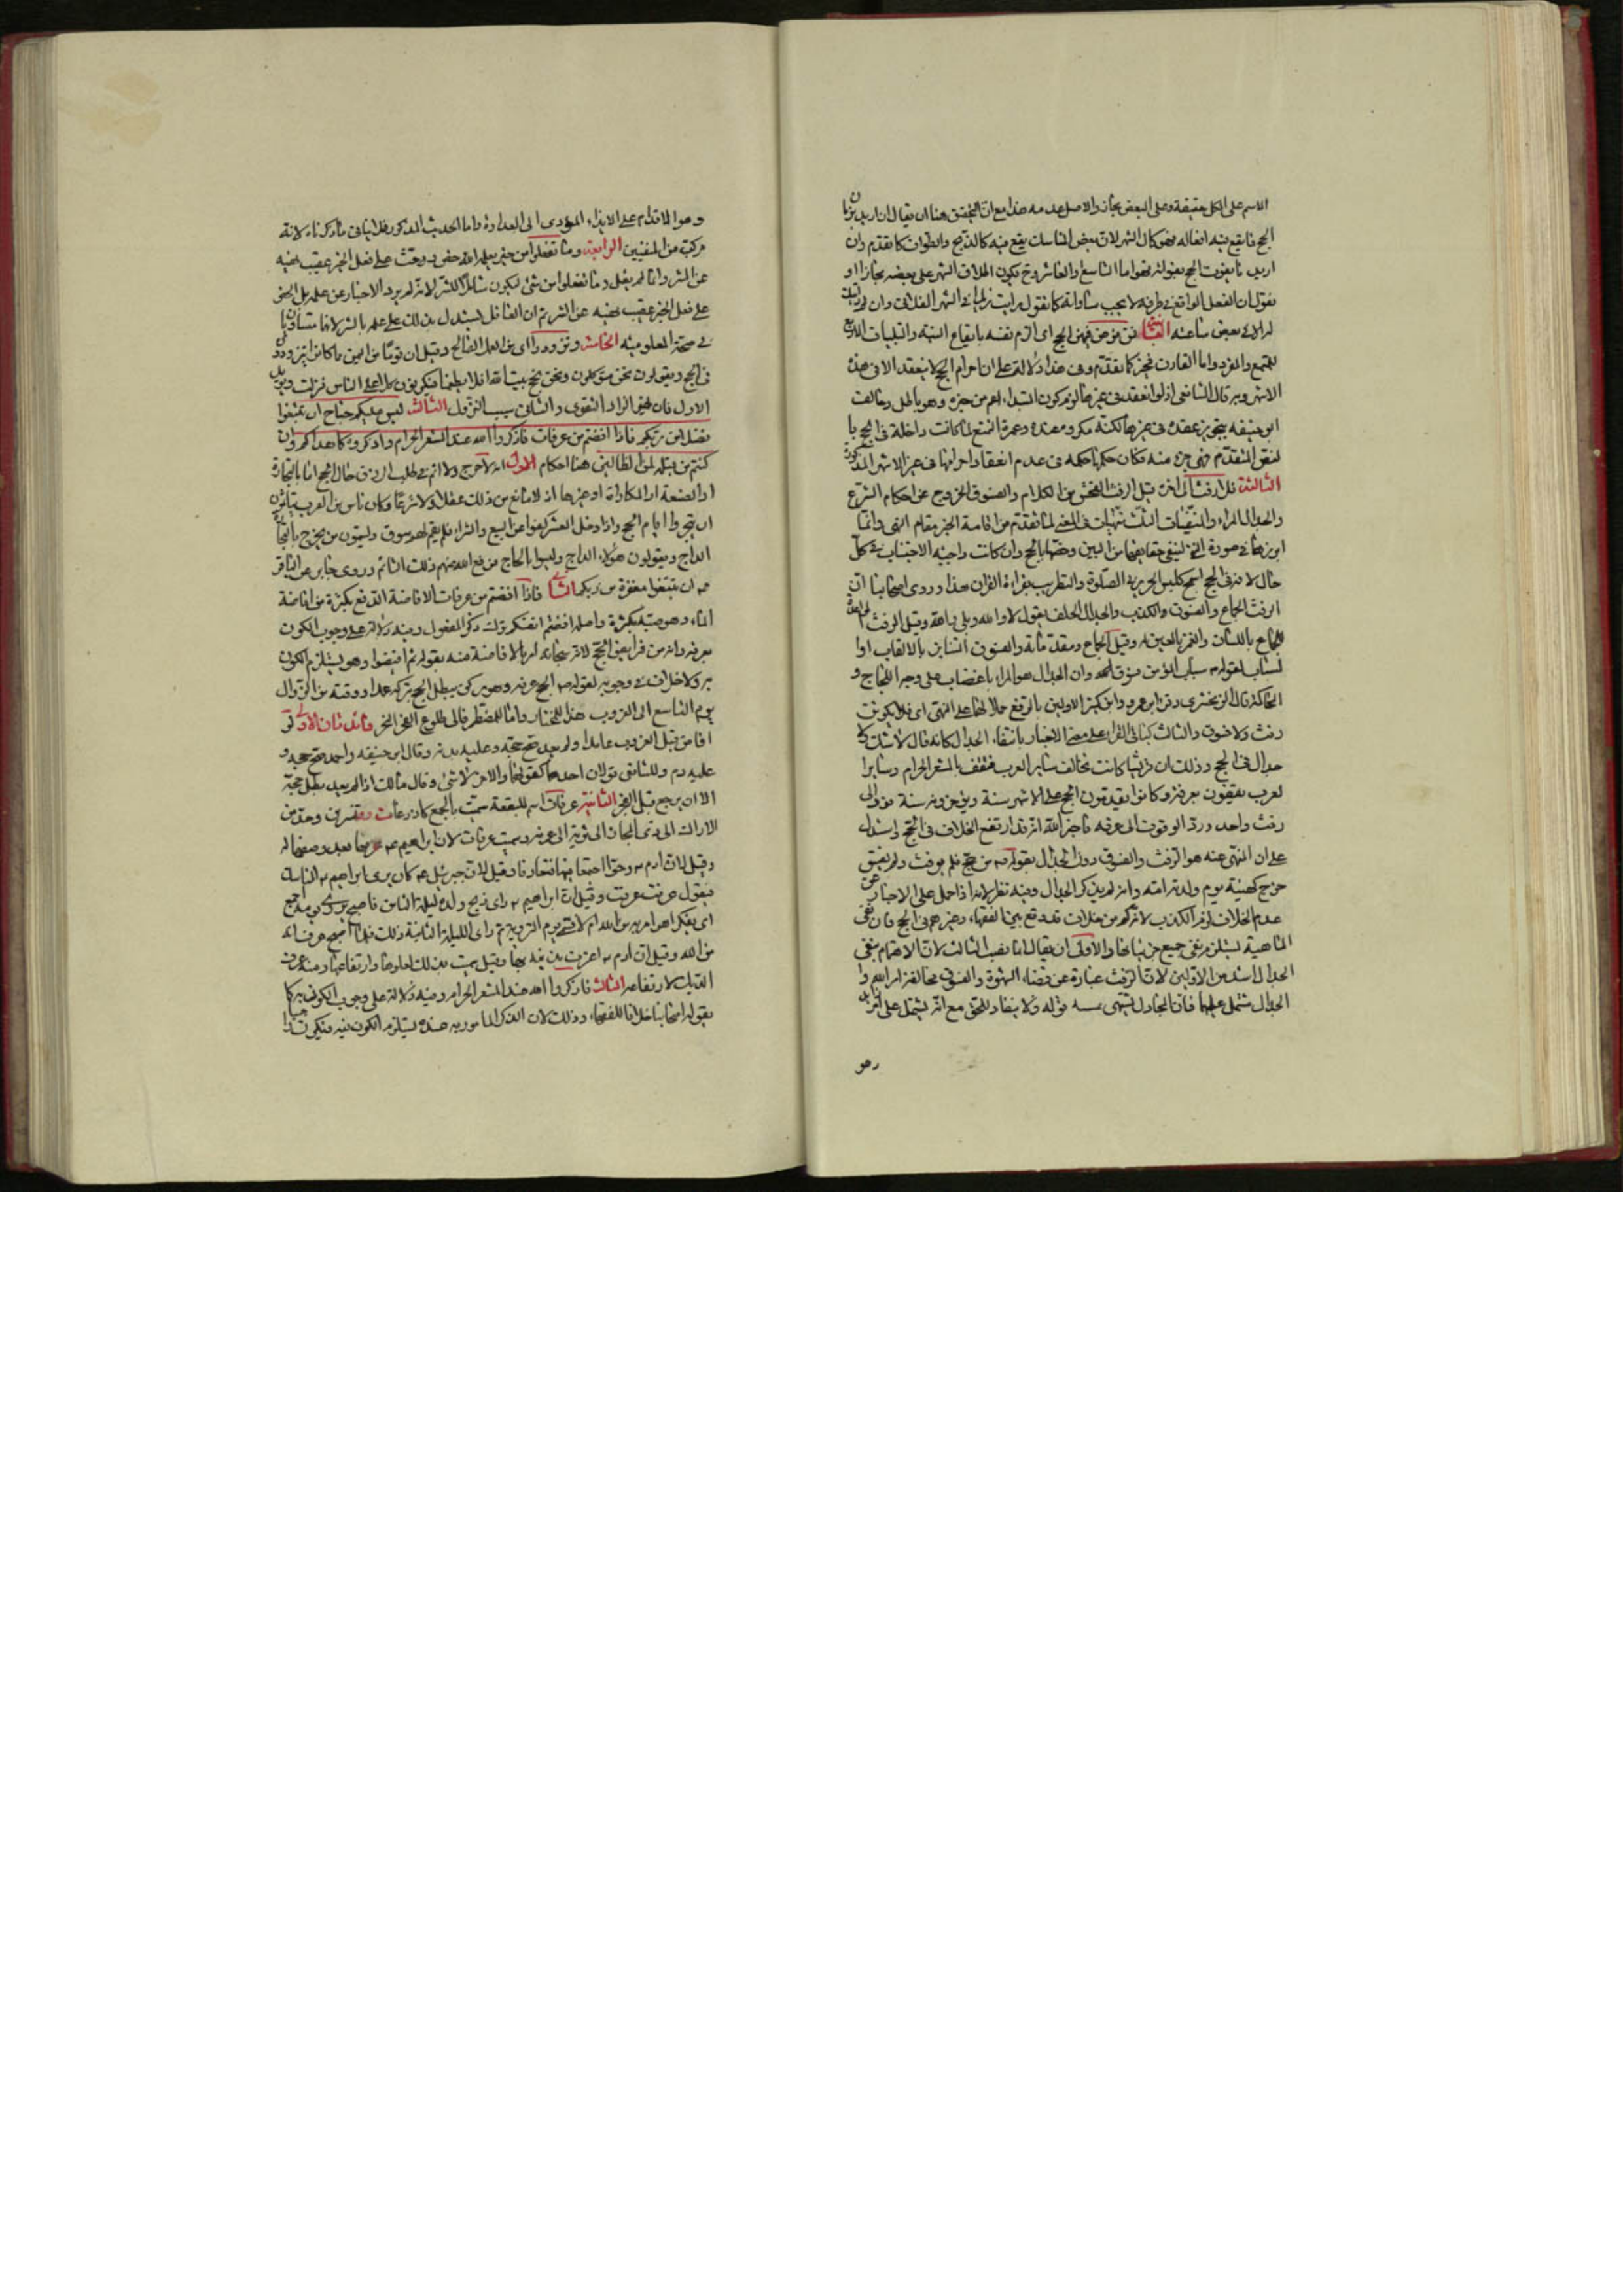 الاسم على الكل حقيقة وعلى البعض مجاز والاصل عدمه هذا مع ان التحقيق هنا ان يقال ان اريد بزمان
الحج ما يقع فيه افعاله فهو كمال الشهر لان بعض المناسك يقع فيه كالذبح والطواف كما تقدم وان
اريد ما يفوت الحج بفواته فهو اما التاسع والعاشر وح يكون اطلاق الشهر على بعضه مجازا او
نقول ان الفعل الواقع في ظرفه لا يجب مساواته كما تقول رايت زيدا في الشهر الفلاني وان
الا في بعض ساعته الثانية فمن فرض فيهن الحج اى الزم نفسه بايقاع النية والتلبيات الاربع
للمتمتع والمفرد واما القارن فمخير كما تقدم وفى هذا دلالة على ان احرام الحج لا ينعقد الا فى هذه
الاشهر وبه قال الشافعى اذ لو انعقد فى غيرها لزم كون المبتدا اعم من خبره وهو باطل وخالفت
ابو حنيفه بتجويز عقده فى غيرها لكنه مكروه عنده وعمرة التمتع لما كانت داخلة فى الحج با
لنقل المتقدم فهى جزء منه فكان حكمها حكمه فى عدم انعقاد احرامها فى غير الاشهر المذكورة
الثالثة فلا رفث الى اخره قيل الرفث الفحش من الكلام والفسوق الخروج عن احكام الشرع
والجدال المراء والمنفيات الثلث منهيات فى المعنى لما تقدم من اقامة الخبر مقام النهى وانما
ابرزها فى صورة النفى لينفى حقايقها من البين وخصها بالحج وان كانت واجبة الاجتناب فى كل
حال لانه فى الحج اسمج كلبس الحرير فى الصلوة والتطريب بقراءة القران هذا وروى اصحابنا ان
الرفث الجماع والفسوق الكذب والجدال الحلف بقول لا والله وبلى والله وقيل الرفث المواعدة
للجماع باللسان والغمز بالعين له وقيل الجماع ومقدماته والفسوق التنابز بالالقاب او ا
لسباب لقوله سباب المؤمن فسوق وان الجدال هو المراء باغضاب على وجه اللجاج و
المماكثة قال الزمخشرى وقرا ابو عمرو وابن كثير الاولين بالرفع حملا لهما على النهى اى فلا يكونن
رفث ولا فسوق والثالث كباقى القراء على معنى الاخبار بانتفاء الجدال كانه قال لا شك ولا
جدال فى الحج وذلك ان قريشا كانت تخالف ساير العرب فتقف بالمشعر الحرام وساير ا
لعرب يقفون بعرفة وكانوا يقدمون الحج على الاشهر سنة ويؤخرونه سنة فرد الى
وقت واحد ورد الوقوف الى عرفه فاخبر الله انه قد ارتفع الخلاف فى الحج واستدل
على ان المنهى عنه هو الرفث والفسوق دون الجدال بقوله من حج فلم يرفث ولم يفسق
خرج كهيئة يوم ولدته امه وانه لم يذكر الجدال وفيه نظر لانه اذا حمل على الاخبار عن
عدم الخلاف لزم الكذب لانه كم من خلاف قد وقع بين الفقهاء وغيرهم فى الحج فان نفى
الماهية يستلزم نفى جميع جزئياتها والاولى ان يقال انما نصب الثالث لان الاهتمام بنفى
الجدال اشد من الاولين لان الرفث عبارة عن قضاء الشهوة والفسوق مخالفة امر الله وا
الجدال مشتمل عليهما فان المجادل يشتهى قوله ولا ينقاد للحق مع انه يشتمل على امر زايد
وهو
وهو الاقدام على الايذاء المؤدى الى العداوة واما الحديث المذكور فلا ينافى ما ذكرناه لانه
مركب من المنفيين الرابعة وما تفعلوا من خير يعلمه الله حض وحث على فعل الخير عقيب نهيه
عن الشر وانما لم يقل وما تفعلوا من شئ ليكون شاملا للشر لانه لم يرد الاخبار عن علمه بل الحض
على فعل الخير عقيب نهيه عن الشر ثم ان العاقل يستدل بذلك على علمه بالشر لانهما متساويان
فى صحة المعلومية الخامسة وتزودوا اى من العمل الصالح وقيل ان قوما من اليمن ما كانوا يتزودون
فى الحج ويقولون نحن متوكلون ونحن نحج بيت الله افلا يطعمنا فيكونون كلا على الناس فنزلت ويؤيد
الاول فان خير الزاد التقوى والثانى سبب النزول الثالث ليس عليكم جناح ان تبتغوا
فضلا من ربكم فاذا افضتم من عرفات فاذكروا الله عند المشعر الحرام واذكروه كما هداكم وان
كنتم من قبله لمن الضالين هنا احكام الاول انه لا حرج ولا اثم فى طلب الرزق حال الحج اما بالتجارة
او الصنعة او المكاراة او غيرها اذ لا مانع من ذلك عقلا ولا شرعا وكان ناس من العرب يتاثمون
ان يتجروا ايام الحج واذا دخل العشر كفوا عن البيع والشراء فلم يقم لهم سوق ويسمون من يخرج بالتجارة
الداج ويقولون هؤلاء الداج وليسوا بالحاج فرفع الله عنهم ذلك التاثم وروى جابر عن الباقر
ان تبتغوا مغفرة من ربكم الثانى فاذا افضتم من عرفات الافاضة الدفع بكثرة من افاضة
الماء وهو صبه بكثرة واصله افضتم انفسكم ترك ذكر المفعول وفيه دلالة على وجوب الكون
بعرفة وانه من فرايض الحج لانه سبحانه امر بالافاضة منه بقوله ثم افيضوا وهو يستلزم الكون
به ولا خلاف فى وجوبه لقوله الحج عرفه وهو ركن يبطل الحج بتركه عمدا ووقته من الزوال
يوم التاسع الى الغروب هذا للمختار واما للمضطر فالى طلوع الفجر النحر فائدتان الاولى لو
افاض قبل الغروب عامدا ولم يعد صح حجه وعليه بدنة وقال ابن حنيفه واحمد صح حجه و
عليه دم وللشافعى قولان احدهما كقولهما والاخر لا شئ وقال مالك اذا لم يعد بطل حجه
الا ان يرجع قبل الفجر الثانية عرفات اسم للبقعة سميت بالجمع كاذرعات وقنسرين وحده من
الاراك الى ذى المجاز الى ثوية الى عرنة وسميت عرفات لان ابراهيم عرفها بعد وصفها له
وقيل لان ادم وحوا اجتمعا فيها فتعارفا وقيل لان جبرئيل كان يرى ابراهيم المناسك
فيقول عرفت عرفت وقيل ان ابراهيم راى ذبح ولده ليلة الثامن فاصبح يروى يومه اجمع
اى يفكر اهو امر من الله ام لا فسمى يوم التروية ثم راى الليلة الثانية ذلك فلما اصبح عرف انه
من الله وقيل ان ادم اعترف بذنبه بها وقيل سميت بذلك لعلوها وارتفاعها ومنه عرف
الديك لارتفاعه الثالث فاذكروا الله عند المشعر الحرام وفيه دلالة على وجوب الكون به كما
يقوله اصحابنا خلافا للفقهاء وذلك لان الذكر المامور به عنده يستلزم الكون فيه فيكون